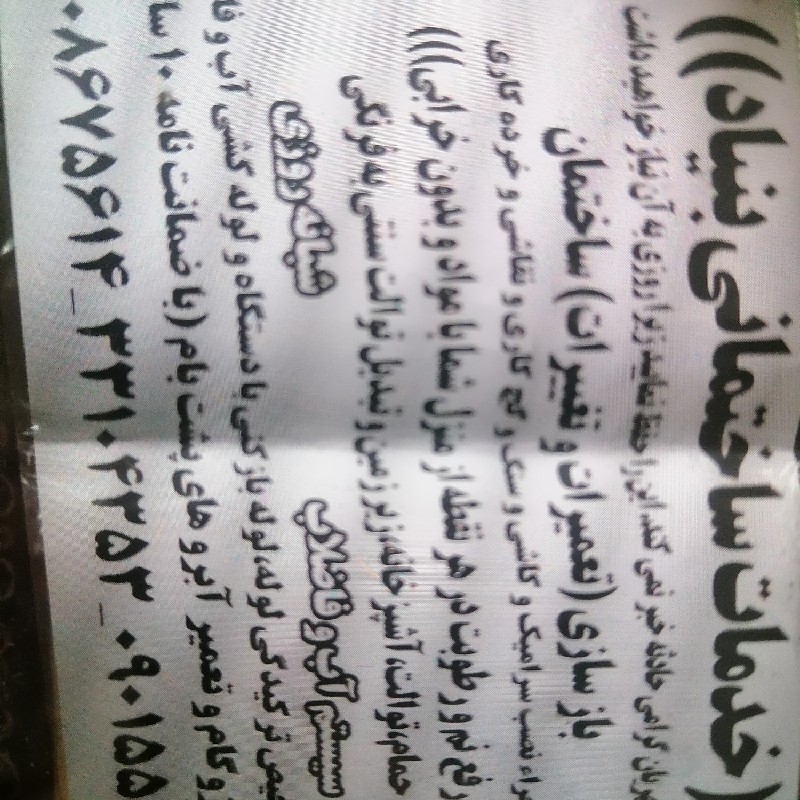 (خدمات ساختمانی بنیاد))
گرامی حادثه خبر نمی کند، این را حفظ نمایید زیرا روزی به آن نیاز خواهید داشت
باز سازی (تعمیرات و تغییرات) ساختمان
نصب سرامیک و کاشی و سنگ و گچ کاری و نقاشی و خرده کاری
رفع نم و رطوبت در هر نقطه از منزل شما با مواد و بدون خرابی)))
حمام، توالت، آشپزخانه، زیرزمین و تبدیل توالت سنتی به فرنگی
سیستم آب و فاضلاب شبانه روزی
ترکیدگی لوله، لوله بازکنی با دستگاه و لوله کشی آب و
و تعمیر آبروهای پشت بام (با ضمانت نامه ۱۰
۰۹۰۱۵۵ _ ۳۳۱۰۴۳۵۳ _ ۰۸۶۷۵۶۱۴